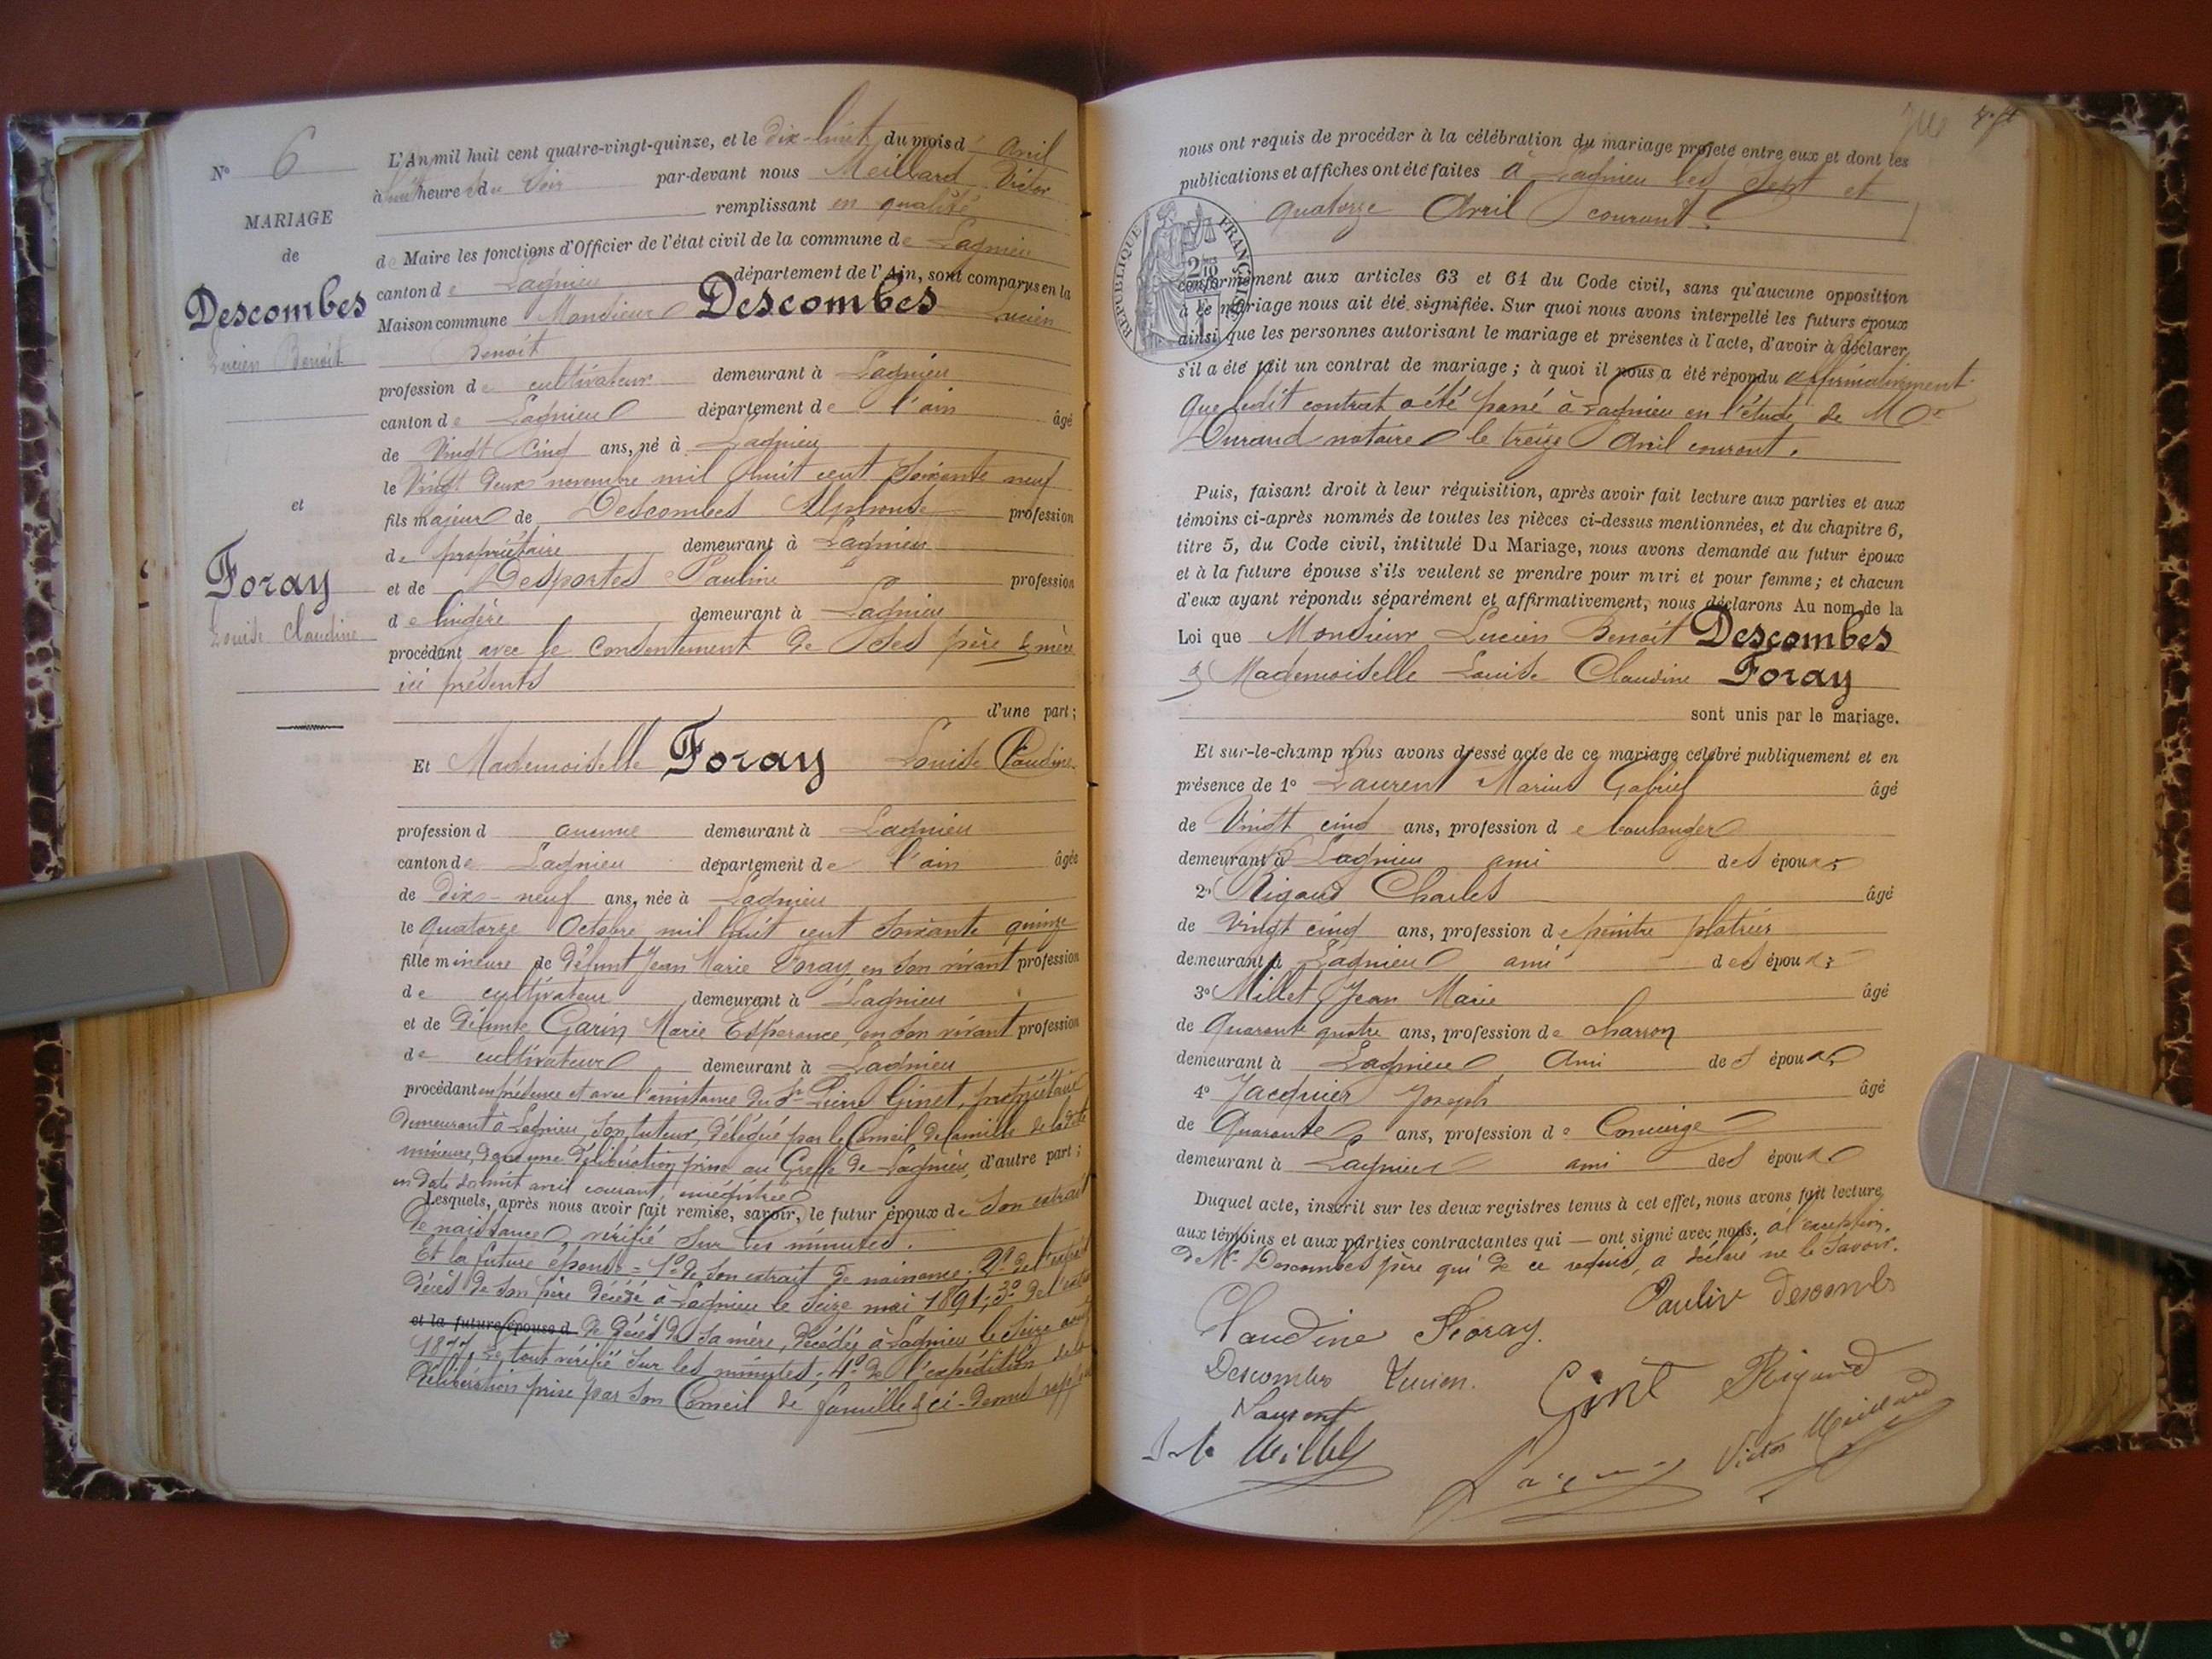 N° 6
MARIAGE
de
Descombes
Lucien Benoît
et
Foray
Louise Claudine
L'An mil huit cent quatre-vingt-quinze, et le dix-huit du mois d'Avril
à huit heure s du soir par-devant nous Meillard Victor
remplissant en qualité
de Maire les fonctions d'Officier de l'état civil de la commune de Lagnieu
canton de Lagnieu département de l'Ain, sont comparus en la
Maison commune Monsieur Descombes Lucien
Benoît
profession de cultivateur demeurant à Lagnieu
canton de Lagnieu département de l'ain âgé
de Vingt Cinq ans, né à Lagnieu
le Vingt deux novembre mil huit cent soixante neuf
fils majeur de Descombes Alphonse profession
de propriétaire demeurant à Lagnieu
et de Desportes Pauline profession
de lingère demeurant à Lagnieu
procédant avec le consentement de ses père & mère
ici présents
d'une part;
Et Mademoiselle Foray Louise Claudine
profession d aucune demeurant à Lagnieu
canton de Lagnieu département de l'ain âgée
de dix-neuf ans, née à Lagnieu
le quatorze Octobre mil huit cent soixante quinze
fille mineure de défunt Jean Marie Foray en son vivant profession
de cultivateur demeurant à Lagnieu
et de défunte Garin Marie Espérance, en son vivant profession
de cultivateur demeurant à Lagnieu
procédant en présence et avec l'assistance du Sr Pierre Ginet, propriétaire
demeurant à Lagnieu, son tuteur, délégué par le Conseil de famille de ladite
mineure, dans une délibération prise au Greffe de Lagnieu, d'autre part;
en date du huit avril courant, enregistrée
Lesquels, après nous avoir fait remise, savoir, le futur époux de son extrait
de naissance, vérifié sur les minutes.
Et la future épouse = 1° de son extrait de naissance; 2° de l'extrait
décès de son père décédé à Lagnieu le seize mai 1891; 3° de l'extrait
et la future épouse d de décès de sa mère, décédée à Lagnieu le seize août
1877, le tout vérifié sur les minutes; 4° de l'expédition de la
délibération prise par son Conseil de famille & ci-dessus
nous ont requis de procéder à la célébration du mariage projeté entre eux et dont les
publications et affiches ont été faites à Lagnieu les sept et
quatorze Avril courant.
RÉPUBLIQUE FRANÇAISE
conformément aux articles 63 et 64 du Code civil, sans qu'aucune opposition
à ce mariage nous ait été signifiée. Sur quoi nous avons interpellé les futurs époux
ainsi que les personnes autorisant le mariage et présentes à l'acte, d'avoir à déclarer
s'il a été fait un contrat de mariage; à quoi il nous a été répondu affirmativement
que ledit contrat a été passé à Lagnieu en l'étude de Me
Durand notaire le treize Avril courant.
Puis, faisant droit à leur réquisition, après avoir fait lecture aux parties et aux
témoins ci-après nommés de toutes les pièces ci-dessus mentionnées, et du chapitre 6,
titre 5, du Code civil, intitulé Du Mariage, nous avons demandé au futur époux
et à la future épouse s'ils veulent se prendre pour mari et pour femme; et chacun
d'eux ayant répondu séparément et affirmativement, nous déclarons Au nom de la
Loi que Monsieur Lucien Benoît Descombes
& Mademoiselle Louise Claudine Foray
sont unis par le mariage.
Et sur-le-champ nous avons dressé acte de ce mariage célébré publiquement et en
présence de 1° Laurent Marius Gabriel âgé
de Vingt cinq ans, profession de boulanger
demeurant à Lagnieu ami des époux
2° Rigaud Charles âgé
de Vingt cinq ans, profession de peintre platrier
demeurant à Lagnieu ami des époux
3° Millet Jean Marie âgé
de Quarante quatre ans, profession de charron
demeurant à Lagnieu Ami des époux
4° Jacquier Joseph âgé
de Quarante ans, profession de Concierge
demeurant à Lagnieu ami des époux
Duquel acte, inscrit sur les deux registres tenus à cet effet, nous avons fait lecture
aux témoins et aux parties contractantes qui — ont signé avec nous. à l'exception
de Mr Descombes père qui de ce requis, a déclaré ne le savoir.
Claudine Foray. Pauline Descombes
Descombes Lucien. Ginet Rigaud
Laurent
Victor Meillard